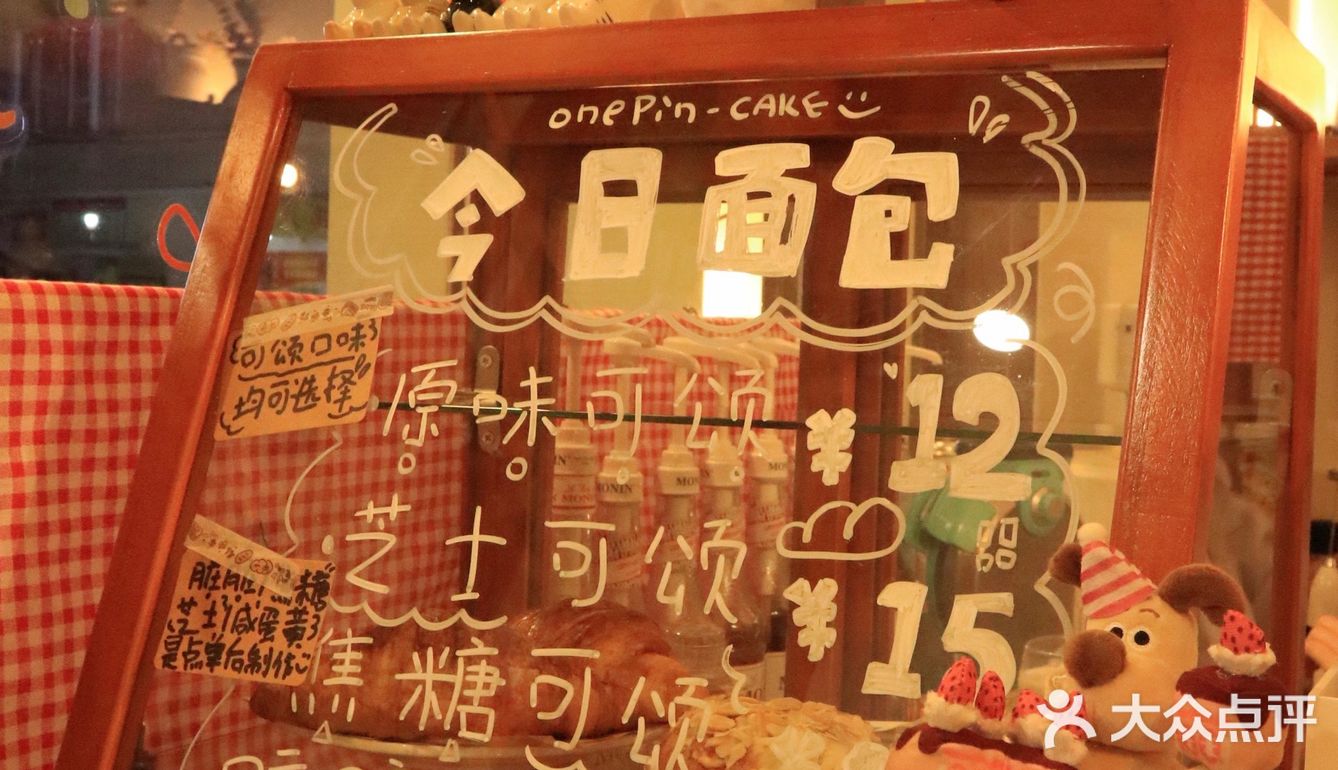 onePin-CAKE
今日面包
可颂口味
均可选择
原味可颂 ¥12
芝士可颂 ¥15
焦糖可颂
芝士/咸蛋黄
是点单后制作
MONIN
大众点评